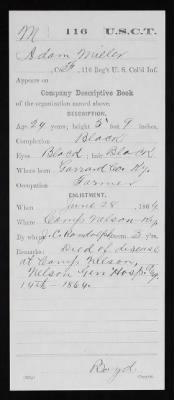 M | 116 | U.S.C.T.
Adam Miller
, Co. F, 116 Reg't U. S. Col'd Inf.
Appears on
Company Descriptive Book
of the organization named above.
DESCRIPTION.
Age 24 years; height 5 feet 9 inches.
Complexion Black
Eyes Black; hair Black
Where born Garrard Co Ky.
Occupation Farmer
ENLISTMENT.
When June 28, 1864
Where Camp Nelson Ky
By whom J. C. Randolph; term 3 y'rs.
Remarks: Died of disease
at Camp Nelson,
Nelson Gen Hosp
14th 1864.
Boyd